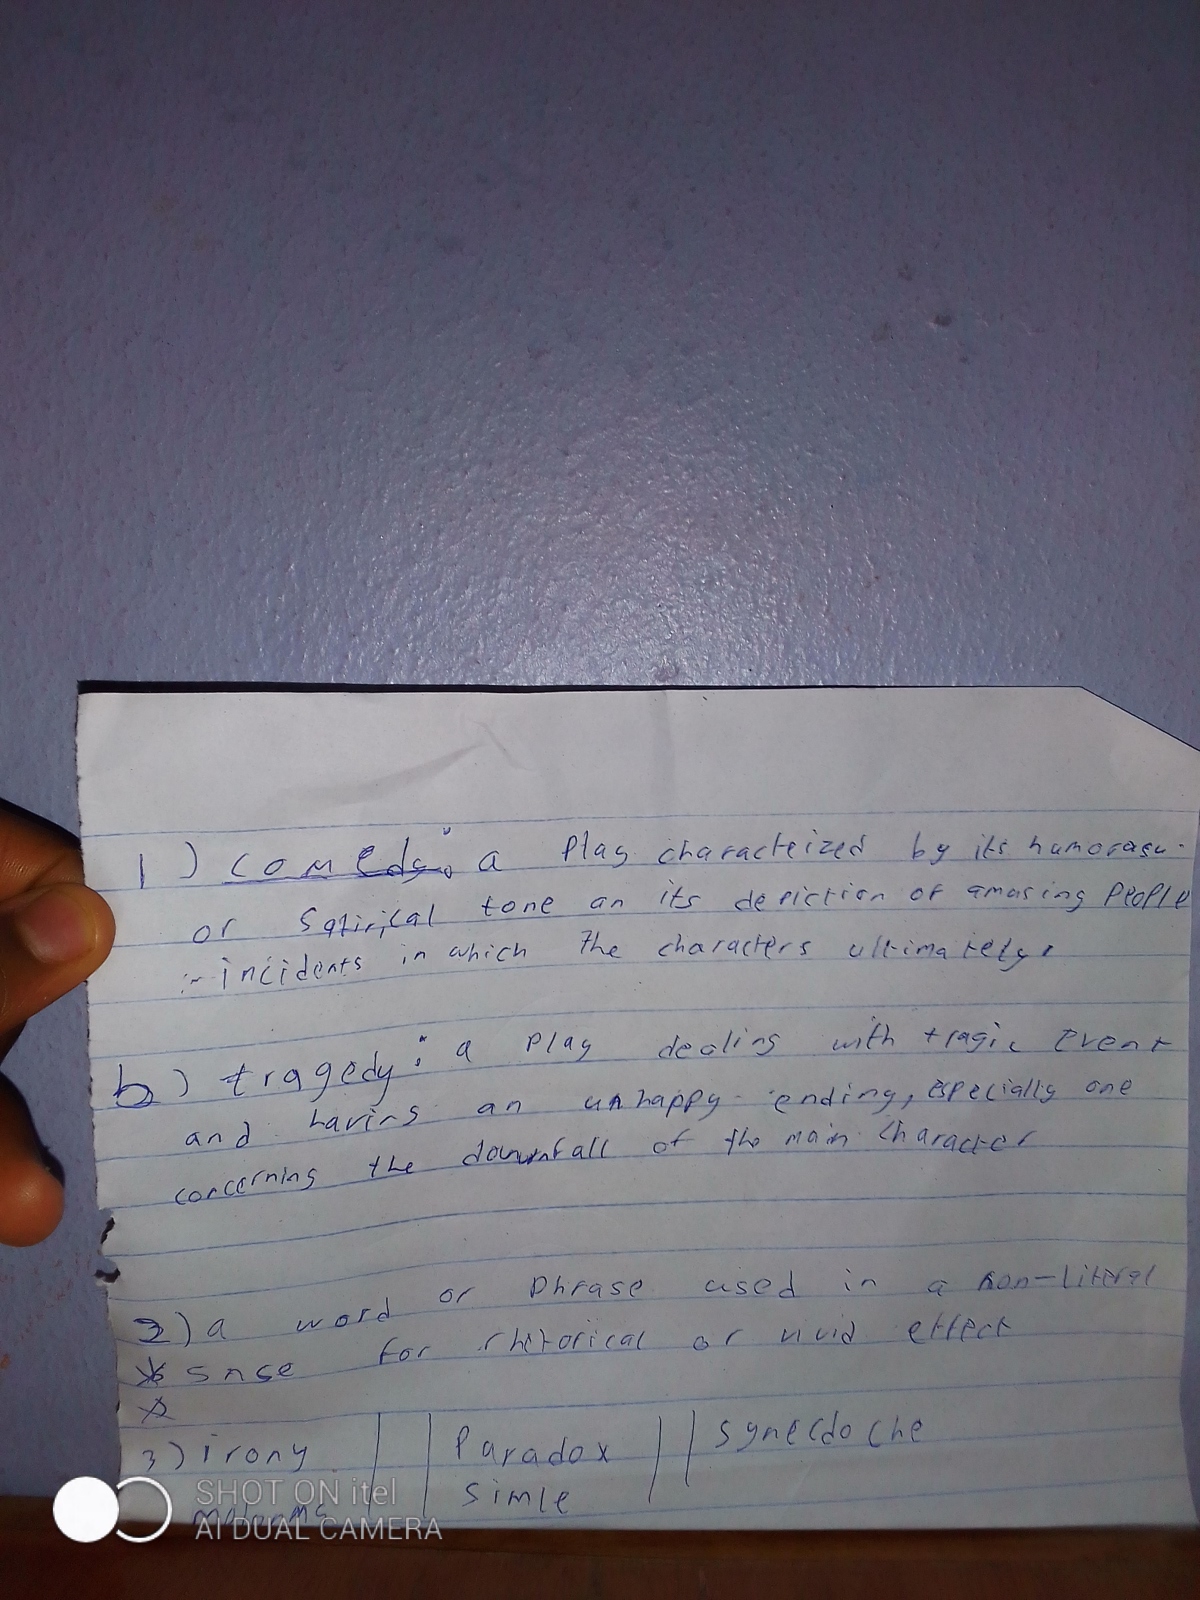 1) comedy: a Play characteized by its humorasu.
or Satirical tone an its depiction of amusing People
:- incidents in which The characters ultimately.
b) tragedy: a Play dealing with tragic Event
and having an unhappy ending, especially one
concerning the downfall of the main character
2) a word or phrase used in a non-literal
snse for rhetorical or vivid effect
3) irony Paradox synecdoche
simle
SHOT ON itel
AI DUAL CAMERA